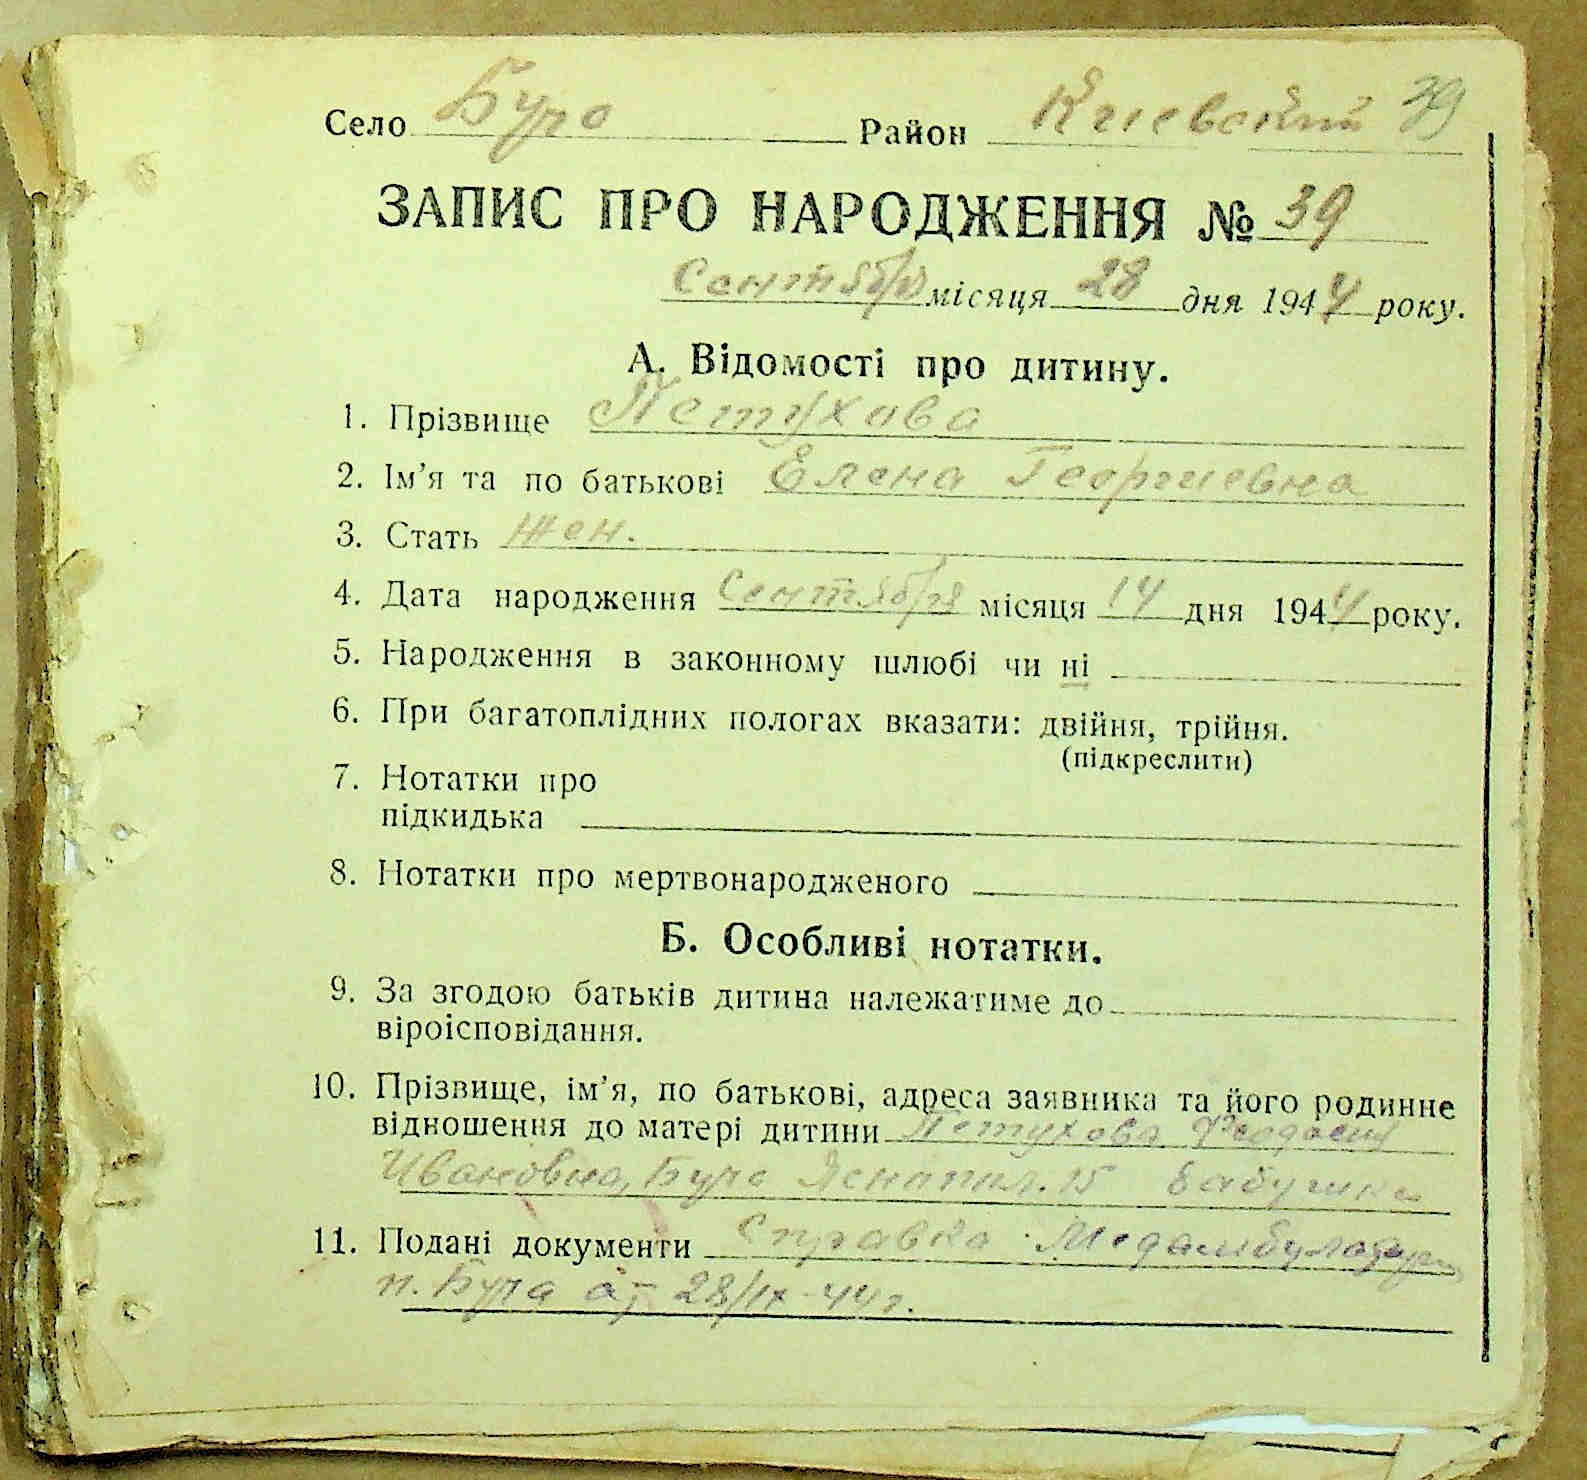 Село Буча Район Киевский 39
ЗАПИС ПРО НАРОДЖЕННЯ № 39
Сентября місяця 28 дня 1944 року.
А. Відомості про дитину.
1. Прізвище Петухова
2. Ім'я та по батькові Елена Георгиевна
3. Стать Жен.
4. Дата народження Сентября місяця 14 дня 1944 року.
5. Народження в законному шлюбі чи ні
6. При багатоплідних пологах вказати: двійня, трійня.
(підкреслити)
7. Нотатки про
підкидька
8. Нотатки про мертвонародженого
Б. Особливі нотатки.
9. За згодою батьків дитина належатиме до
віроісповідання.
10. Прізвище, ім'я, по батькові, адреса заявника та його родинне
відношення до матері дитини Петухова Феодосия
Ивановна, Буча 15 бабушка
11. Подані документи Справка Медамбулатории
п. Буча от 28/IX-44 г.